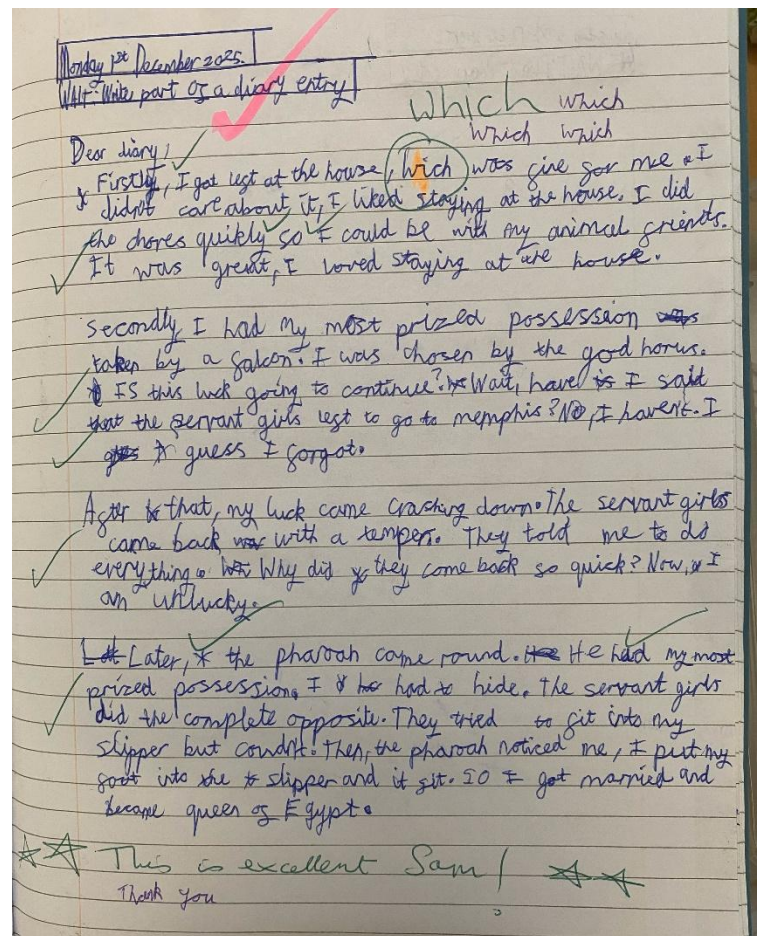 Monday 1st December 2025.
WALT: Write part of a diary entry
which which
which which
Dear diary,
Firstly, I got left at the house, wich was fine for me. I
didn't care about it, I liked staying at the house. I did
the chores quikly so I could be with my animal friends.
It was great, I loved staying at the house.
Secondly, I had my most prized possession
taken by a falcon. I was chosen by the god horus.
IS this luck going to continue? Wait, have I said
that the servant girls left to go to memphis? No, I haven't. I
guess I forgot.
After that, my luck came crashing down. The servant girls
came back with a temper. They told me to do
everything. Why did they come back so quick? Now, I
am unlucky.
Later, the pharoah came round. He had my most
prized possession, I had to hide. The servant girls
did the complete opposite. They tried to fit into my
slipper but couldn't. Then, the pharoah noticed me, I put my
foot into the slipper and it fit. SO I got married and
became queen of Egypt.
This is excellent Sam!
Thank you